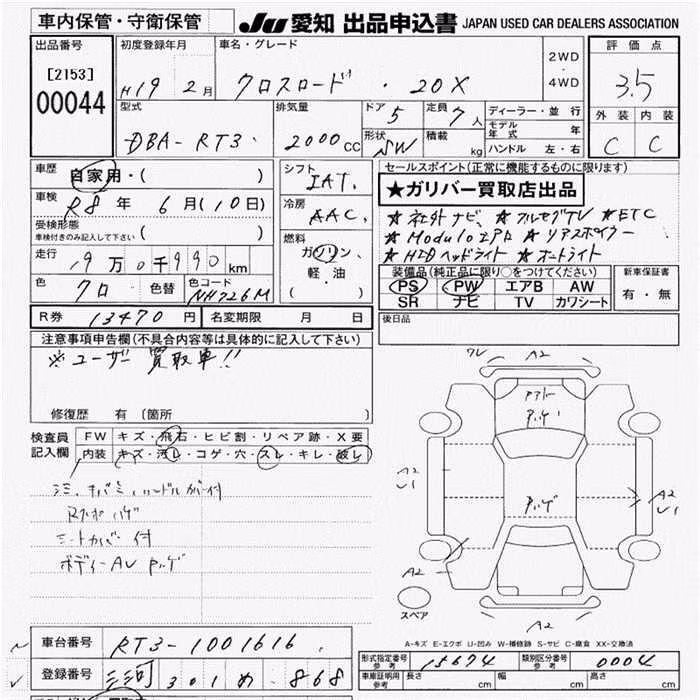 車内保管・守衛保管 JU 愛知 出品申込書 JAPAN USED CAR DEALERS ASSOCIATION
出品番号 初度登録年月 車名・グレード 2WD ・ 4WD 評価点
[2153] 00044 H19年 2月 クロスロード ・ 20X 3.5
型式 排気量 ドア 5 定員 7人 ディーラー・並行 外装 内装
DBA-RT3 2000cc 形状 SW 積載 kg モデル年式 年 C C
ハンドル 左・右
車歴 自家用・( ) シフト IAT セールスポイント(正常に機能するものに限ります)
車検 R8年 6月(10日) 冷房 AAC ★ガリバー買取店出品
受検形態 ★社外ナビ、★フルセグTV ★ETC
車検付きのみ記入して下さい( ) 燃料 ★Moduloエアロ ★リアスポイラー
走行 9万0千990km ガソリン ★HIDヘッドライト ★オートライト
色 クロ 色替 色コード NH726M 軽・油 ( ) 装備品(純正品に限り○をつけてください) 新車保証書
PS PW エアB AW 有・無
SR ナビ TV カワシート
R券 13470円 名変期限 月 日 後日品
注意事項申告欄(不具合内容等は具体的に記入して下さい)
※ユーザー買取車!!
修復歴 有(箇所
検査員記入欄 FW キズ・飛石・ヒビ割・リペア跡・X要
内装 キズ・汚レ・コゲ・穴・スレ・キレ・破レ
ハンドルカバー付
シートカバー付
ボディーAU
ワレ A2
A2
U1
A2
U1
A2
A2
スペア
A-キズ E-エクボ U-凹み W-補修跡 S-サビ C-腐食 XX-交換済
車台番号 RT3-1001616 型式指定番号 参考 15674 類別区分番号 参考 0004
登録番号 三河 301 め 868 車庫証明用 参考 長さ cm 幅 cm 高さ cm